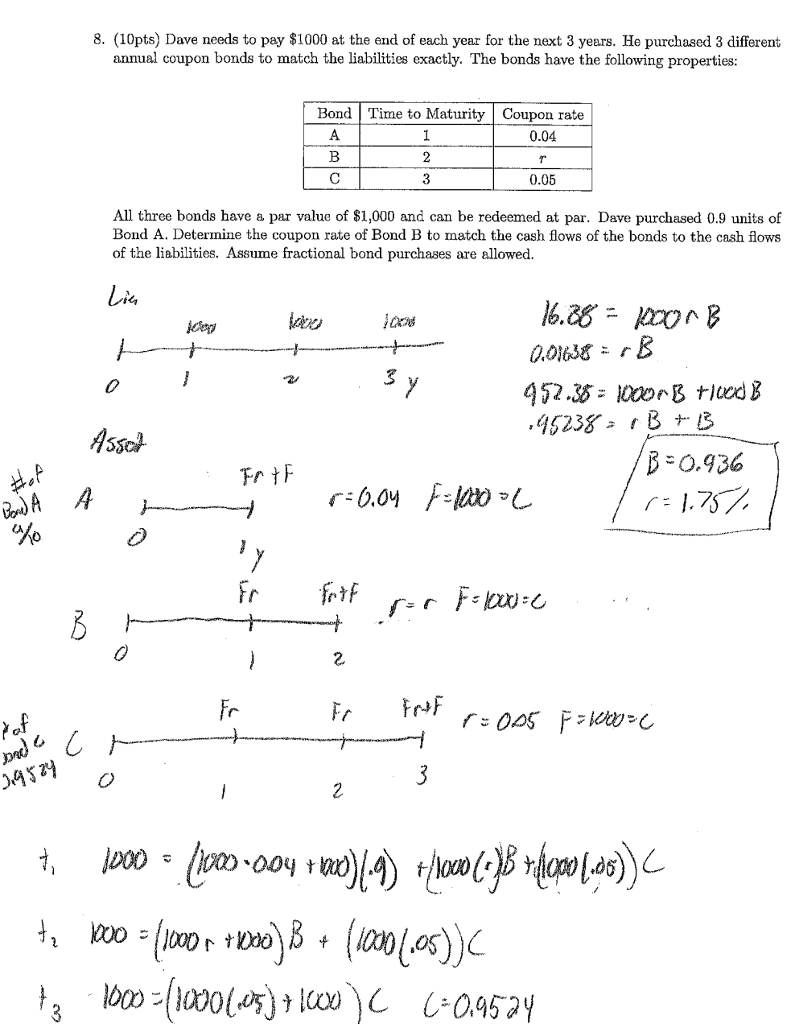 8. (10pts) Dave needs to pay $1000 at the end of each year for the next 3 years. He purchased 3 different
annual coupon bonds to match the liabilities exactly. The bonds have the following properties:
Bond Time to Maturity Coupon rate
A 1 0.04
B 2 r
C 3 0.05
All three bonds have a par value of $1,000 and can be redeemed at par. Dave purchased 0.9 units of
Bond A. Determine the coupon rate of Bond B to match the cash flows of the bonds to the cash flows
of the liabilities. Assume fractional bond purchases are allowed.
Lia
1000 1000 1000
0 1 2 3 y
16.38 = 1000rB
0.01638 = rB
952.38 = 1000rB + 1000B
.95238 = rB + B
B = 0.936
r = 1.75%
Asset
# of
Bond A
A
Fr + F
0 1 y
r = 0.04 F = 1000 = C
B
Fr Fr+F
0 1 2
r = r F = 1000 = C
# of
bond C
0.9524
C
Fr Fr Fr+F
0 1 2 3
r = 0.05 F = 1000 = C
t₁ 1000 = (1000·0.04 + 1000)(.9) + (1000(r))B + (1000(.05))C
t₂ 1000 = (1000r + 1000)B + (1000(.05))C
t₃ 1000 = (1000(.05) + 1000)C C = 0.9524